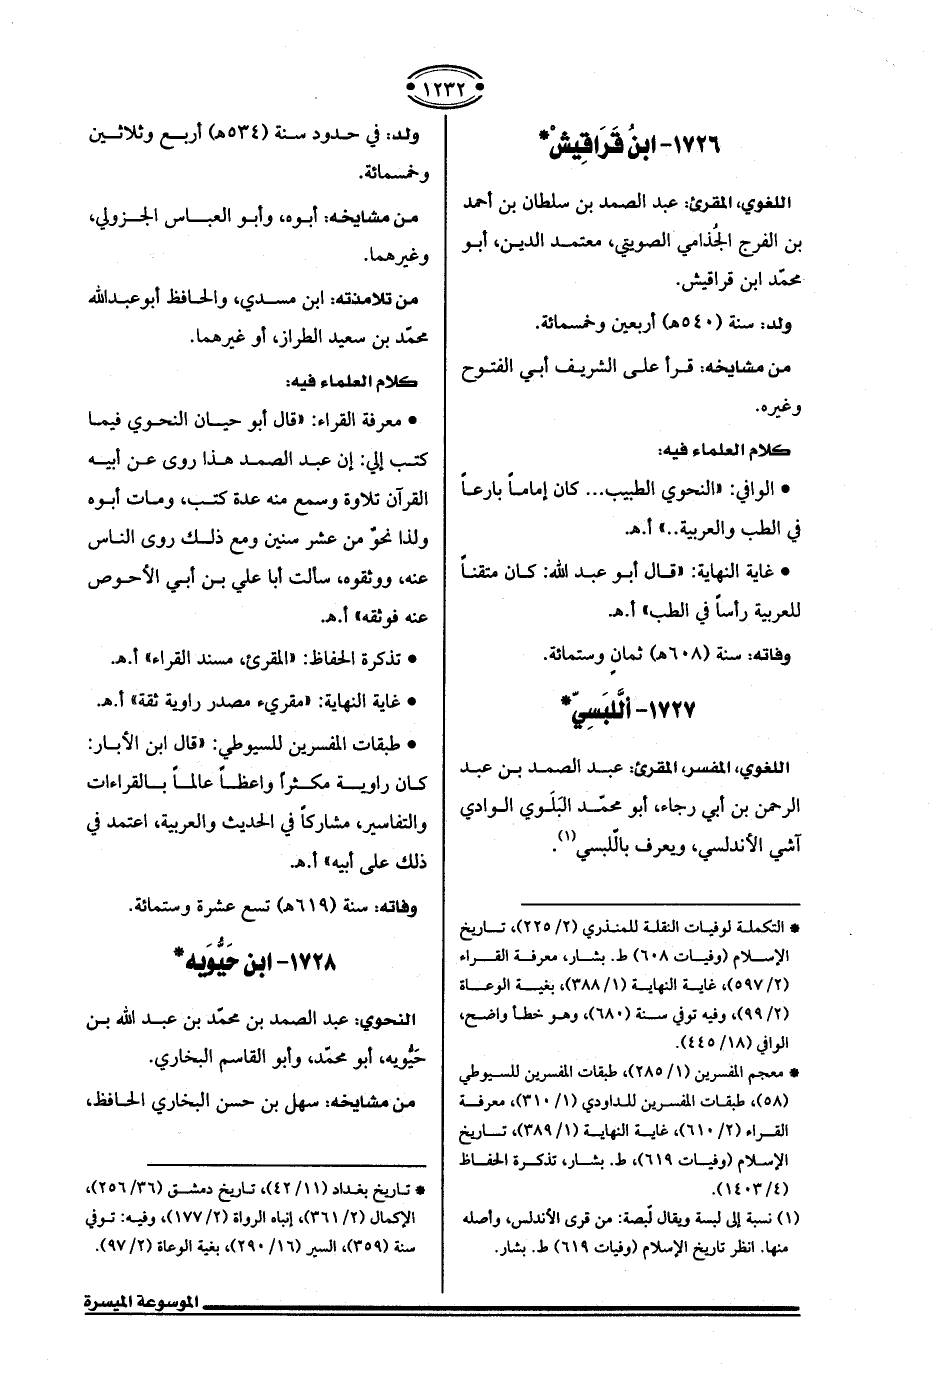 ١٢٣٢
١٧٢٦- ابنُ قَرَاقِيشْ*
اللغوي، المقرئ: عبد الصمد بن سلطان بن أحمد
بن الفرج الجُذامي الصويتي، معتمد الدين، أبو
محمّد ابن قراقيش.
ولد: سنة (٥٤٠هـ) أربعين وخمسمائة.
من مشايخه: قرأ على الشريف أبي الفتوح
وغيره.
كلام العلماء فيه:
• الوافي: «النحوي الطبيب... كان إماماً بارعاً
في الطب والعربية..» أ.هـ.
• غاية النهاية: «قال أبو عبد الله: كان متقناً
للعربية رأساً في الطب» أ.هـ.
وفاته: سنة (٦٠٨هـ) ثمانٍ وستمائة.
١٧٢٧- اللَّبَسِيّ*
اللغوي، المفسر، المقرئ: عبد الصمد بن عبد
الرحمن بن أبي رجاء، أبو محمّد البَلَوي الوادي
آشي الأندلسي، ويعرف باللّبسي(١).
* التكملة لوفيات النقلة للمنذري (٢/ ٢٢٥)، تاريخ
الإسلام (وفيات ٦٠٨) ط. بشار، معرفة القراء
(٢/ ٥٩٧)، غاية النهاية (١/ ٣٨٨)، بغية الوعاة
(٢/ ٩٩)، وفيه توفي سنة (٦٨٠)، وهو خطأ واضح،
الوافي (١٨/ ٤٤٥).
* معجم المفسرين (١/ ٢٨٥)، طبقات المفسرين للسيوطي
(٥٨)، طبقات المفسرين للداودي (١/ ٣١٠)، معرفة
القراء (٢/ ٦١٠)، غاية النهاية (١/ ٣٨٩)، تاريخ
الإسلام (وفيات ٦١٩)، ط. بشار، تذكرة الحفاظ
(٤/ ١٤٠٣).
(١) نسبة إلى لبسة ويقال لّبصة: من قرى الأندلس، وأصله
منها. انظر تاريخ الإسلام (وفيات ٦١٩) ط. بشار.
ولد: في حدود سنة (٥٣٤هـ) أربع وثلاثين
وخمسمائة.
من مشايخه: أبوه، وأبو العباس الجزولي،
وغيرهما.
من تلامذته: ابن مسدي، والحافظ أبو عبدالله
محمّد بن سعيد الطراز، أو غيرهما.
كلام العلماء فيه:
• معرفة القراء: «قال أبو حيان النحوي فيما
كتب إلي: إن عبد الصمد هذا روى عن أبيه
القرآن تلاوة وسمع منه عدة كتب، ومات أبوه
ولذا نحوٌ من عشر سنين ومع ذلك روى الناس
عنه، ووثقوه، سألت أبا علي بن أبي الأحوص
عنه فوثقه» أ.هـ.
• تذكرة الحفاظ: «المقرئ، مسند القراء» أ.هـ.
• غاية النهاية: «مقريء مصدر راوية ثقة» أ.هـ.
• طبقات المفسرين للسيوطي: «قال ابن الأبار:
كان راوية مكثراً واعظاً عالماً بالقراءات
والتفاسير، مشاركاً في الحديث والعربية، اعتمد في
ذلك على أبيه» أ.هـ.
وفاته: سنة (٦١٩هـ) تسع عشرة وستمائة.
١٧٢٨- ابن حَيُّويه*
النحوي: عبد الصمد بن محمّد بن عبد الله بن
حيُّويه، أبو محمّد، وأبو القاسم البخاري.
من مشايخه: سهل بن حسن البخاري الحافظ،
* تاريخ بغداد (١١/ ٤٢)، تاريخ دمشق (٣٦/ ٢٥٦)،
الإكمال (٢/ ٣٦١)، إنباه الرواة (٢/ ١٧٧)، وفيه: توفي
سنة (٣٥٩)، السير (١٦/ ٢٩٠)، بغية الوعاة (٢/ ٩٧).
الموسوعة الميسرة